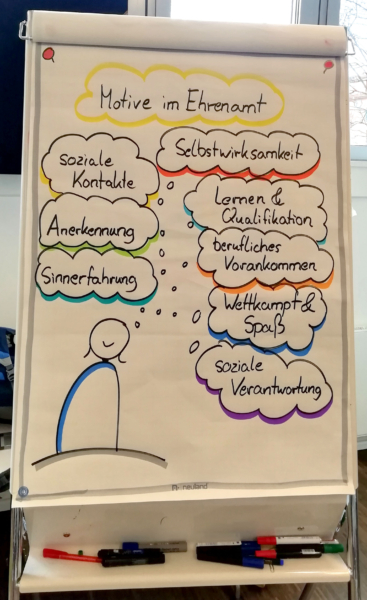 Motive im Ehrenamt
soziale
Kontakte
Anerkennung
Sinnerfahrung
Selbstwirksamkeit
Lernen &
Qualifikation
berufliches
Vorankommen
Wettkampf &
Spaß
soziale
Verantwortung
neuland